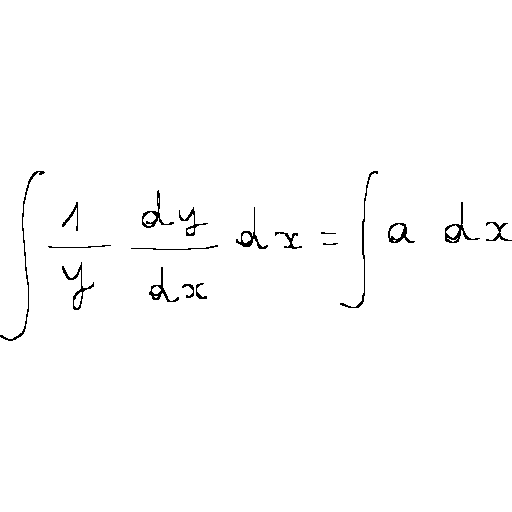 \int \frac{1}{y} \frac{dy}{dx} dx = \int a dx